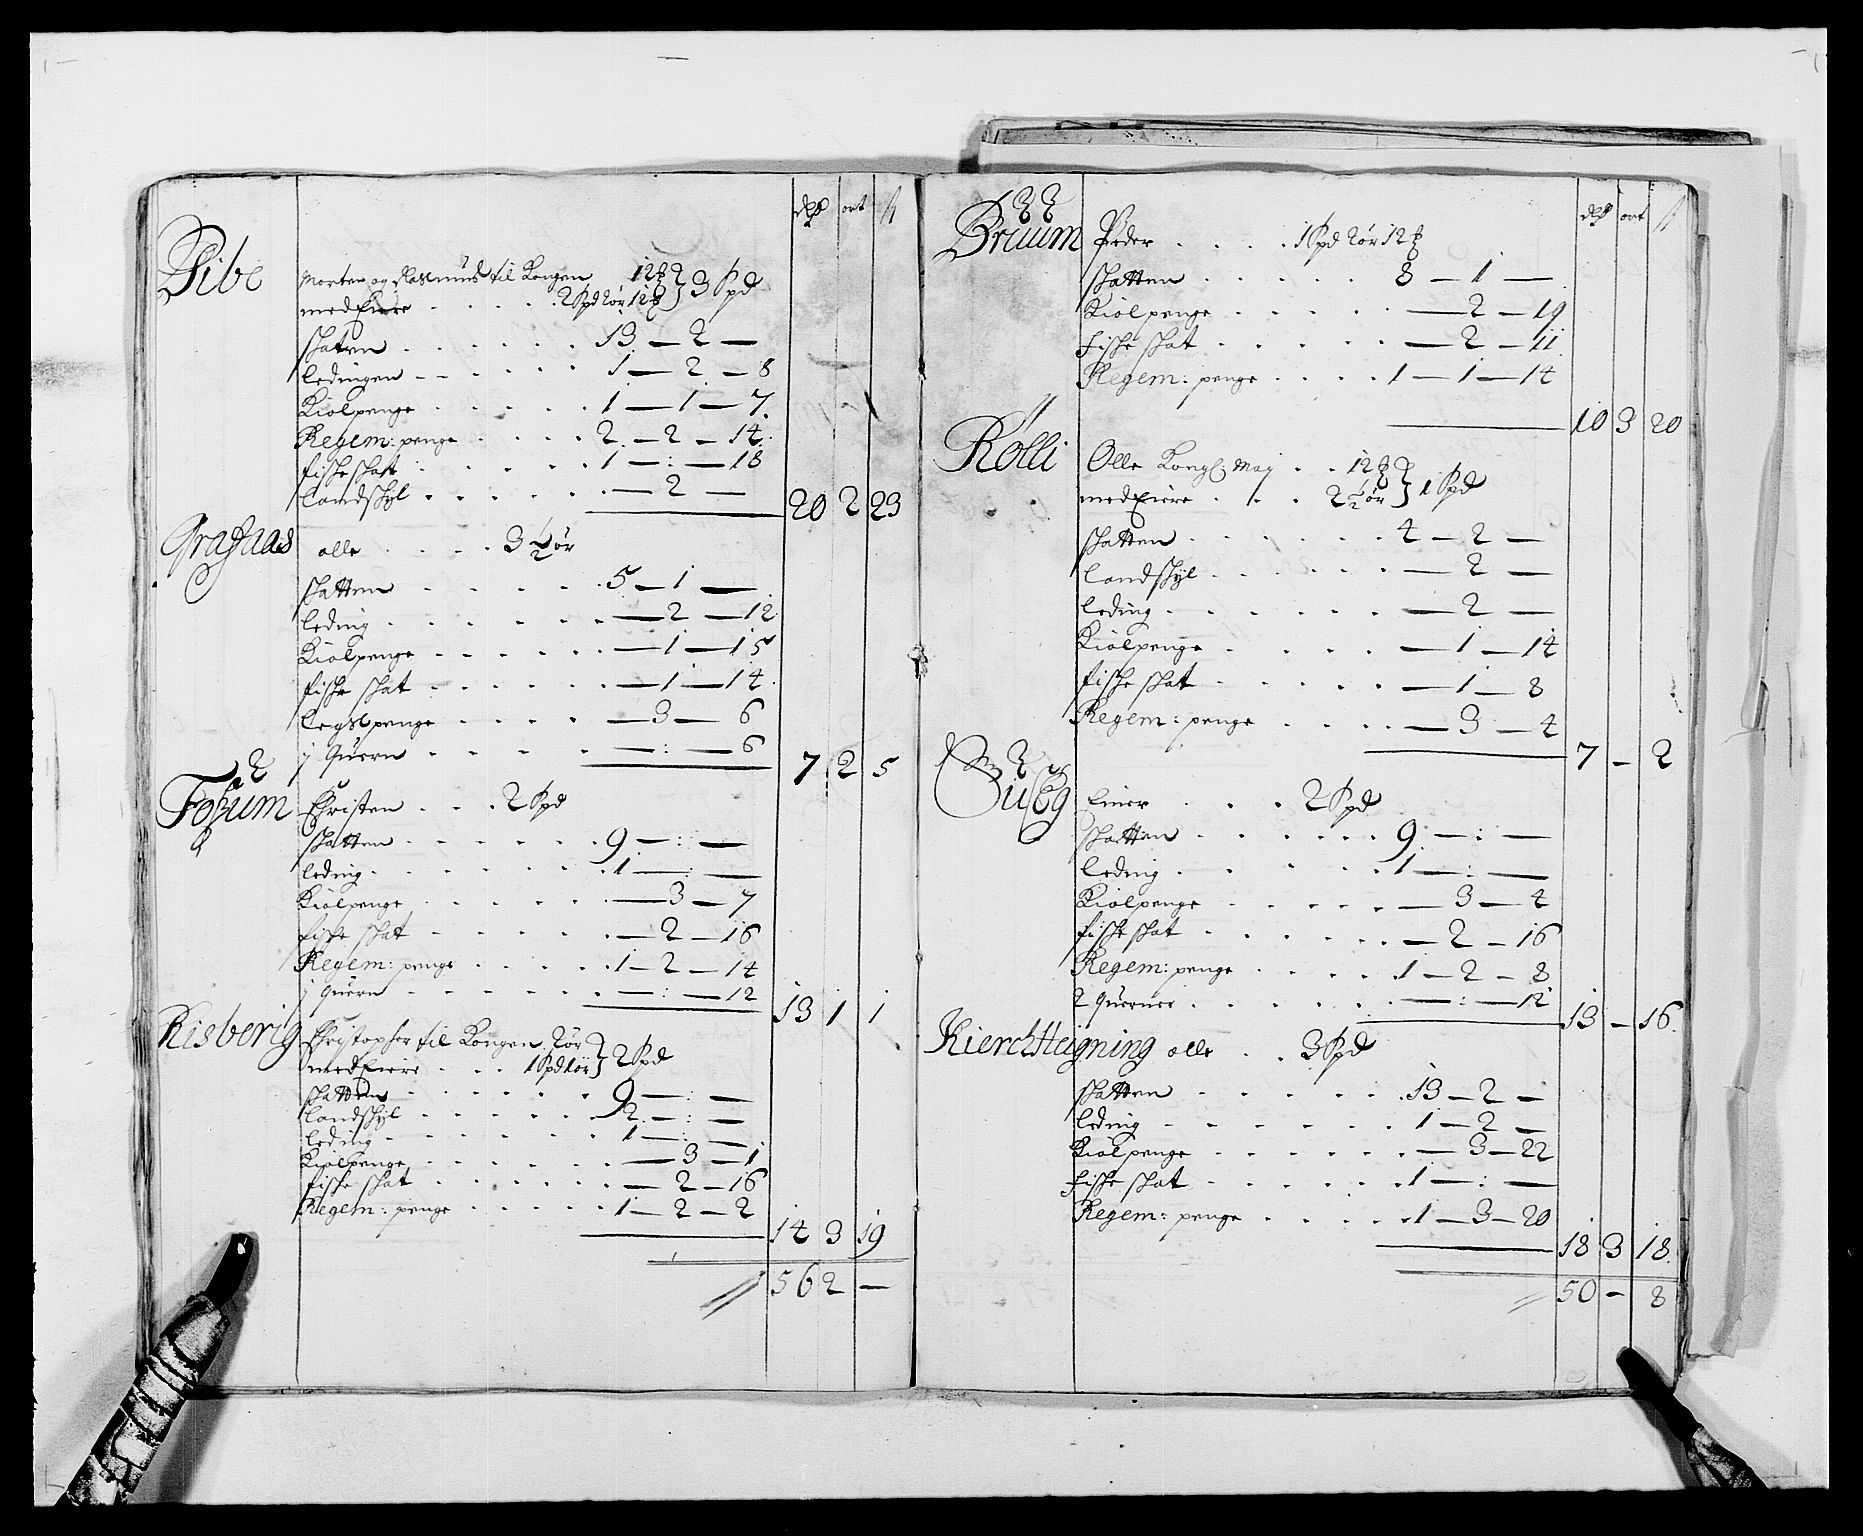 dlr ort ß
Pibe
Morten og Rasmus til Kongen 12 ₰
med Eiere . . . . 2 Spd 2ør 12 ₰ } 3 Spd
skaten . . . . . . 13 — 2 —
ledingen . . . . . . 1 — 2 — 8
Kiølpenge . . . . . . 1 — 1 — 7
Regem: penge . . . . 2 — 2 — 14
fiske skatt . . . . . 1 — : — 18
Landskyl . . . . . . — 2 —
20 2 23
olle . . . . 3 1/2 ør
skatten . . . . . 5 — 1 —
leding . . . . . . — 2 — 12
Kiølpenge . . . . . — 1 — 15
fiske skat . . . . . — 1 — 14
legspenge . . . . — 3 — 6
j Quern . . . . . — : — 6
7 2 5
2
Fossum Christen . . . 2 Spd
skatten . . . . . . 9 — : —
leding . . . . . . . 1 — : —
Kiølpenge . . . . . . — 3 — 7
fiske skat . . . . . — 2 — 16
Regem: penge . . . . . 1 — 2 — 14
j Quern . . . . . . — : — 12
13 1 1
Risberig Christopher til Kongen 2ør
med Eiere . . . 1 Spd 1ør } 2 Spd
skatten . . . . . . 9 — : —
Landskyl . . . . . . 2 — : —
leding . . . . . . . 1 — : —
Kiølpenge . . . . . . — 3 — 1
fiske skat . . . . . . — 2 — 16
Regem: penge . . . . . 1 — 2 — 2
14 3 19
56 2 —
dlr ort ß
122
Bruum Peder . . . . 1 Spd 2ør 12 ₰
skatten . . . . . . 8 — 1 —
Kiølpenge . . . . . — 2 — 19
fiske skat . . . . . — 2 — 11
Regem: penge . . . . 1 — 1 — 14
10 3 20
Rølli Olle Kongl: May . . 12 ₰
med Eiere . . . 2 1/2 ør } 1 Spd
skatten . . . . . . 4 — 2 —
Landskyl . . . . . . — 2 —
leding . . . . . . — 2 —
Kiølpenge . . . . — 1 — 14
fiske skat . . . . . — 1 — 8
Regem: penge . . . . — 3 — 4
7 — 2
2
Einer . . . 2 Spd
skatten . . . . . . 9 — : —
leding . . . . . 1 — : —
Kiølpenge . . . . . — 3 — 4
fiske skat . . . . . — 2 — 16
Regem: penge . . . . 1 — 2 — 8
2 Querner . . . . . . — : — 12
13 — 16
Kierchteigning olle . . 3 Spd
skatten . . . . . . 13 — 2 —
leding . . . . . . 1 — 2 —
Kiølpenge . . . . . . — 3 — 22
fiske skat . . . . . . 1 — : —
Regem: penge . . . . 1 — 3 — 20
18 3 18
50 — 8